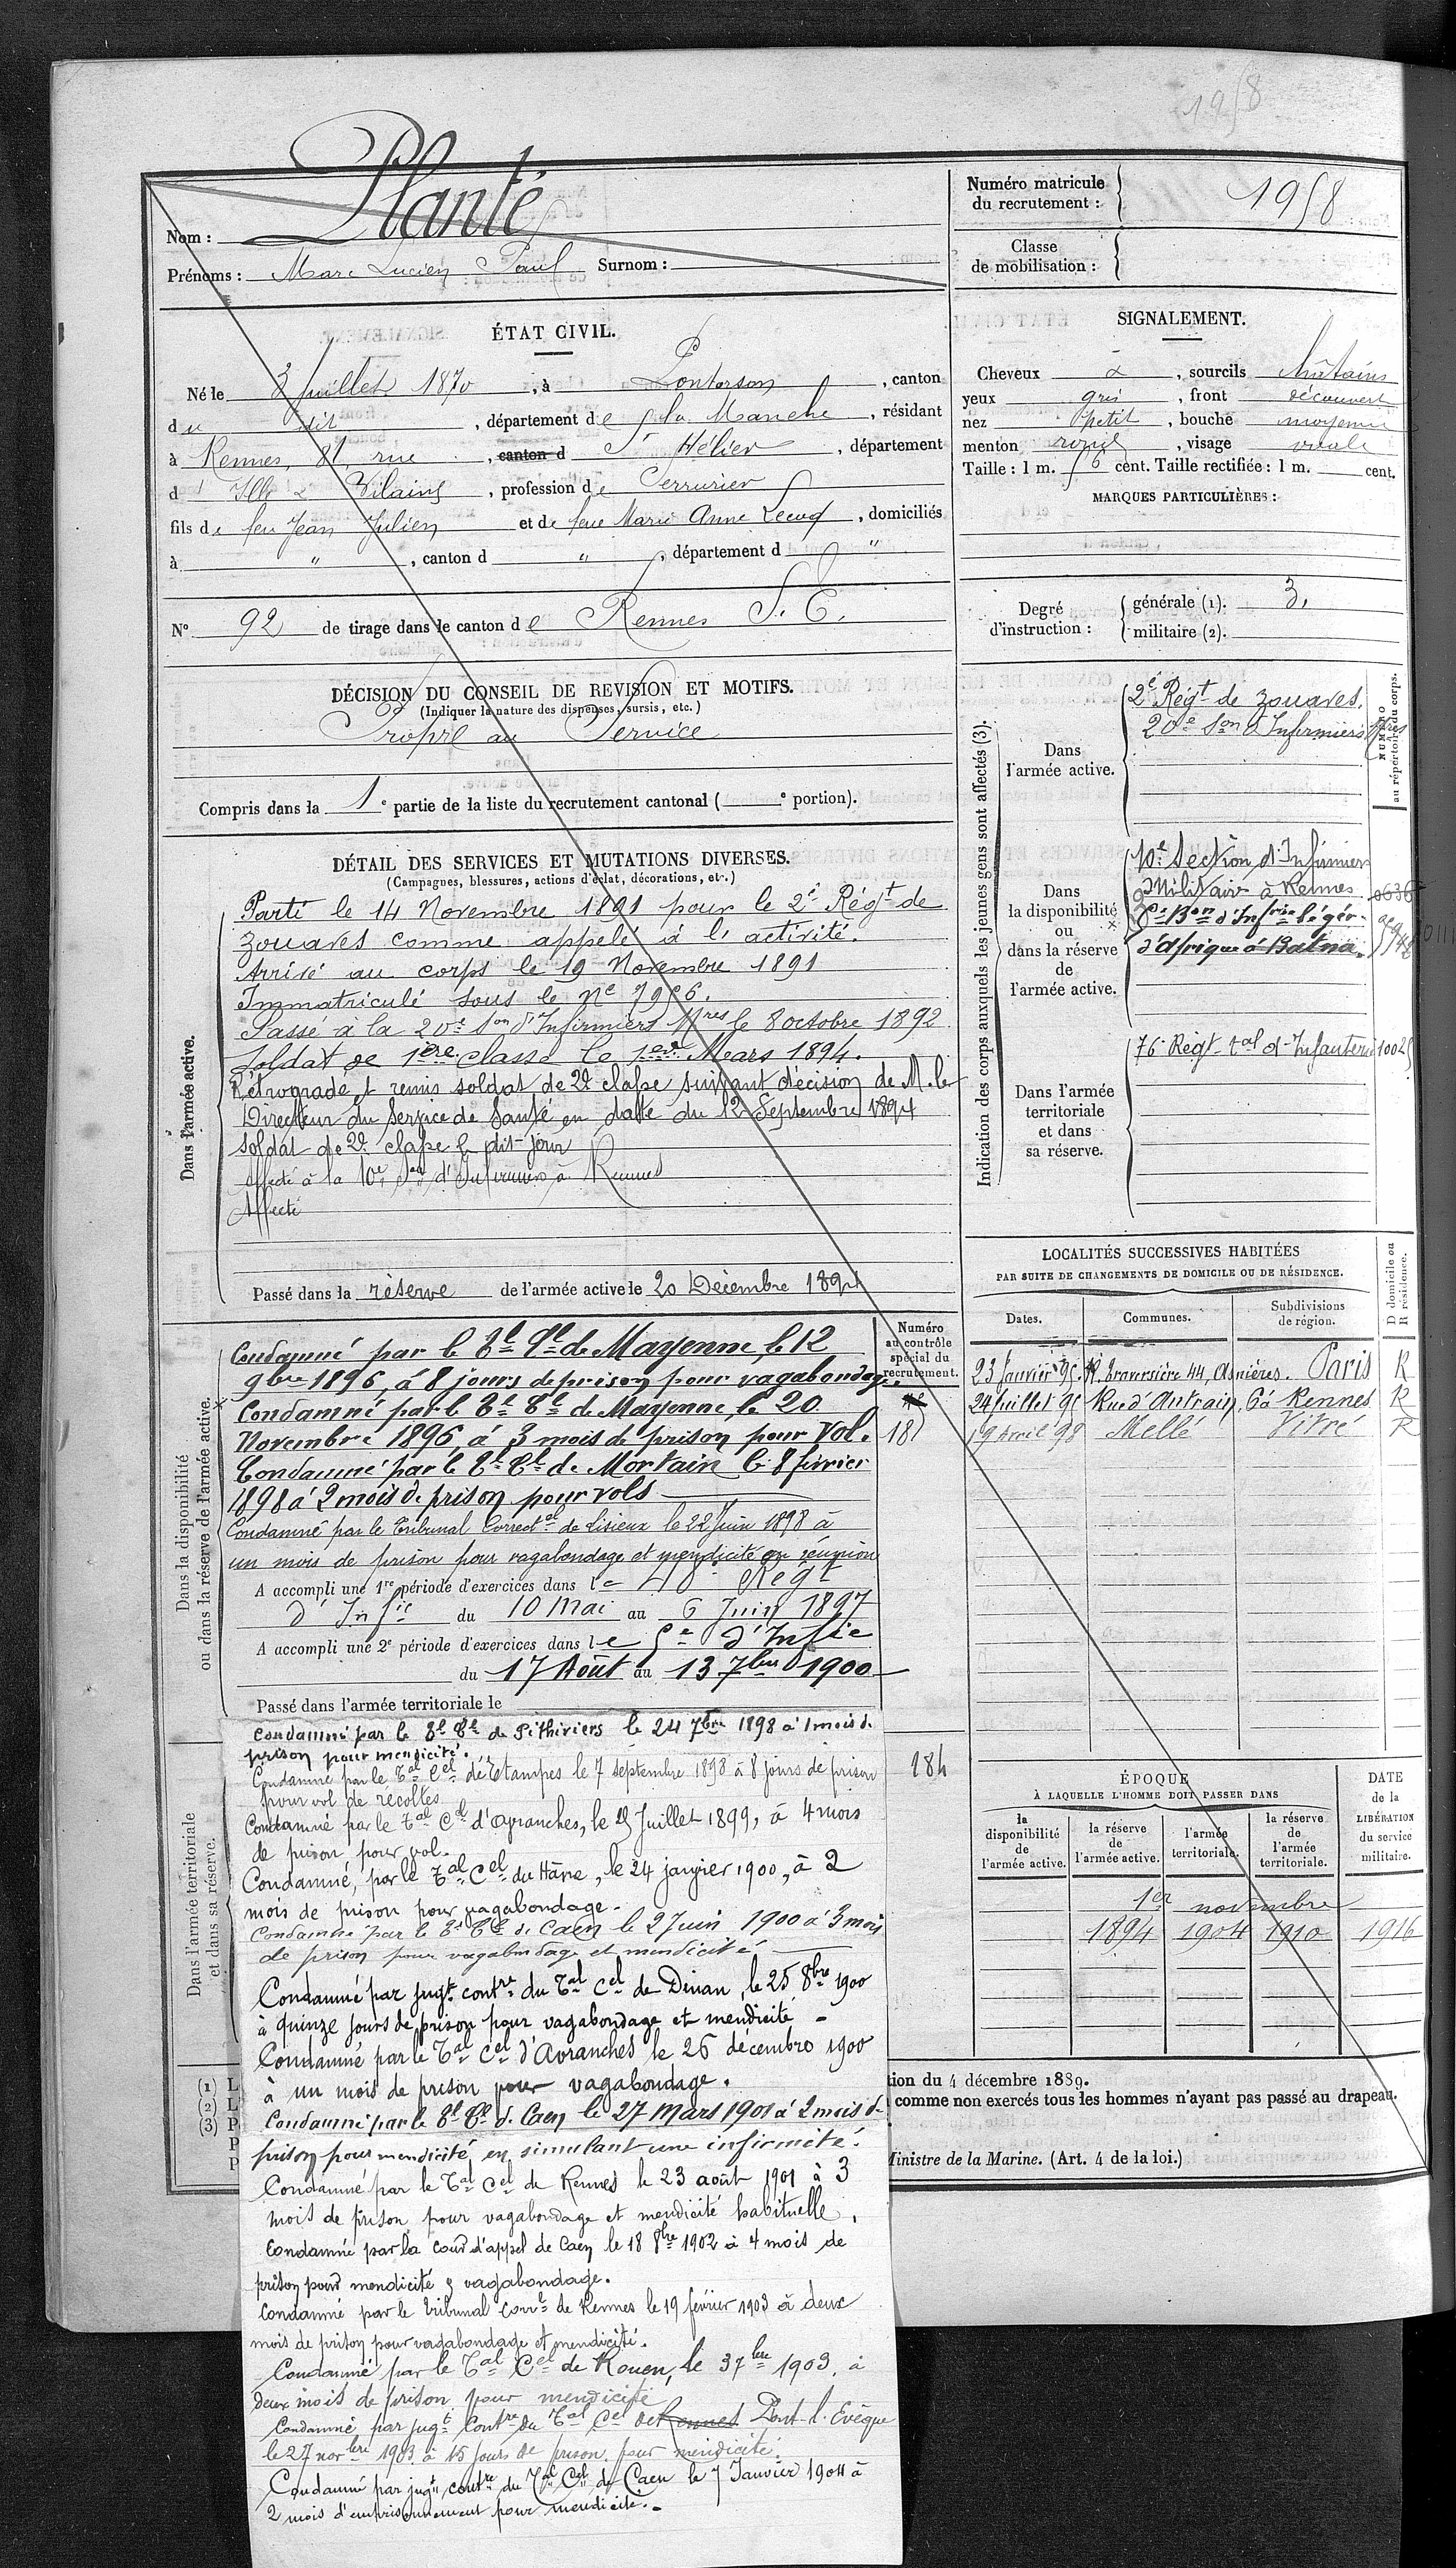 1958
Nom : Planté
Prénoms : Marc Lucien Paul Surnom :
Numéro matricule du recrutement : 1958
Classe de mobilisation :
ÉTAT CIVIL.
Né le 3 juillet 1870, à Pontorson, canton
du dit, département de la Manche, résidant
à Rennes, 81, rue, canton d St Hélier, département
d'Ille & Vilaine, profession de Serrurier
fils de feu Jean Julien et de feue Marie Anne Lecoq, domiciliés
à ", canton d ", département d "
N° 92 de tirage dans le canton de Rennes S. E.
SIGNALEMENT.
Cheveux &, sourcils châtains
yeux gris, front découvert
nez petit, bouche moyenne
menton rond, visage ovale
Taille : 1 m. 56 cent. Taille rectifiée : 1 m. cent.
MARQUES PARTICULIÈRES :
Degré d'instruction : générale (1). 3.
militaire (2).
DÉCISION DU CONSEIL DE REVISION ET MOTIFS.
(Indiquer la nature des dispenses, sursis, etc.)
Propre au Service
Compris dans la 1e partie de la liste du recrutement cantonal ( e portion).
DÉTAIL DES SERVICES ET MUTATIONS DIVERSES.
(Campagnes, blessures, actions d'éclat, décorations, etc.)
Dans l'armée active.
Parti le 14 Novembre 1891 pour le 2e Régt de
zouaves comme appelé à l'activité.
Arrivé au corps le 19 Novembre 1891
Immatriculé sous le No
Passé à la 20e Son d'Infirmiers Mres le 8 octobre 1892
Soldat de 1ère classe le 1er Mars 1894.
Rétrogradé & remis soldat de 2e classe suivant décision de M. le
Directeur du Service de Santé en date du 12 Septembre 1894
soldat de 2e classe le dit jour
Affecté à la 10e Son d'Infirmiers à Rennes
Affecté
Passé dans la réserve de l'armée active le 20 Décembre 1894
Indication des corps auxquels les jeunes gens sont affectés (3).
NUMÉRO au répertoire du corps.
Dans l'armée active.
2e Régt de zouaves.
20e Son d'Infirmiers Mres
Dans la disponibilité ou dans la réserve de l'armée active.
10e Section d'Infirmiers
Militaire à Rennes
5e Bon d'Infrie légère
d'Afrique à Batna.
Dans l'armée territoriale et dans sa réserve.
76e Régt tal d'Infanterie
LOCALITÉS SUCCESSIVES HABITÉES
PAR SUITE DE CHANGEMENTS DE DOMICILE OU DE RÉSIDENCE.
Dates. Communes. Subdivisions de région. D domicile ou R résidence.
23 Janvier 95. R. Traversière 44, Asnières. Paris R
24 Juillet 95 Rue d'Antrain, 6 à Rennes R
19 Avril 98 Mellé Vitré R
Dans la disponibilité ou dans la réserve de l'armée active.
Numéro au contrôle spécial du recrutement.
Condamné par le Tl Cl de Mayenne, le 12
9bre 1896, à 8 jours de prison pour vagabondage.
Condamné par le Tl Cl de Mayenne, le 20
Novembre 1896, à 3 mois de prison pour Vol.
Condamné par le Tl Cl de Mortain le 8 février
1898 à 2 mois de prison pour vols
Condamné par le Tribunal Correctel de Lisieux le 22 Juin 1898 à
un mois de prison pour vagabondage et mendicité en réunion
A accompli une 1re période d'exercices dans le 48e Régt
d'Infie du 10 Mai au 6 Juin 1897
A accompli une 2e période d'exercices dans le 5e d'Infie
du 17 Août au 13 7bre 1900
Passé dans l'armée territoriale le
Dans l'armée territoriale et dans sa réserve.
184
Condamné par le Tl Cl de Pithiviers le 24 7bre 1898 à 1 mois de
prison pour mendicité.
Condamné par le Tal Cel d'Etampes le 7 septembre 1898 à 8 jours de prison
pour vol de récoltes
Condamné par le Tal Cel d'Avranches, le Juillet 1899, à 4 mois
de prison pour vol.
Condamné, par le Tal Cel du Hâvre, le 24 janvier 1900, à 2
mois de prison pour vagabondage.
Condamné par le Tl Cl de Caen le 2 Juin 1900 à 3 mois
de prison pour vagabondage et mendicité
Condamné par jugt contre du Tal Cel de Dinan, le 25 8bre 1900
à quinze jours de prison pour vagabondage et mendicité.
Condamné par le Tal Cel d'Avranches le 26 décembre 1900
à un mois de prison pour vagabondage.
Condamné par le Tl Cl de Caen le 27 Mars 1901 à 2 mois de
prison pour mendicité en simulant une infirmité.
Condamné par le Tal Cel de Rennes le 23 août 1901 à 3
mois de prison pour vagabondage et mendicité habituelle.
Condamné par la cour d'appel de Caen le 18 8bre 1902 à 4 mois de
prison pour mendicité & vagabondage.
Condamné par le Tribunal Correl de Rennes le 19 février 1903 à deux
mois de prison pour vagabondage et mendicité.
Condamné par le Tal Cel de Rouen, le 3 7bre 1903, à
deux mois de prison pour mendicité
Condamné par jugt Contre du Tal Cel de Rennes Pont-l'Evêque
le 27 novbre 1903 à 15 jours de prison pour mendicité.
Condamné par jugt contre du Tal Cel de Caen le 7 Janvier 1904 à
2 mois d'emprisonnement pour mendicité.
ÉPOQUE
À LAQUELLE L'HOMME DOIT PASSER DANS
la disponibilité de l'armée active. la réserve de l'armée active. l'armée territoriale. la réserve de l'armée territoriale.
DATE de la LIBÉRATION du service militaire.
1er novembre
1894 1904 1910 1916
(1) L
(2) L
(3) P
P
P
tion du 4 décembre 1889.
comme non exercés tous les hommes n'ayant pas passé au drapeau.
Ministre de la Marine. (Art. 4 de la loi.)